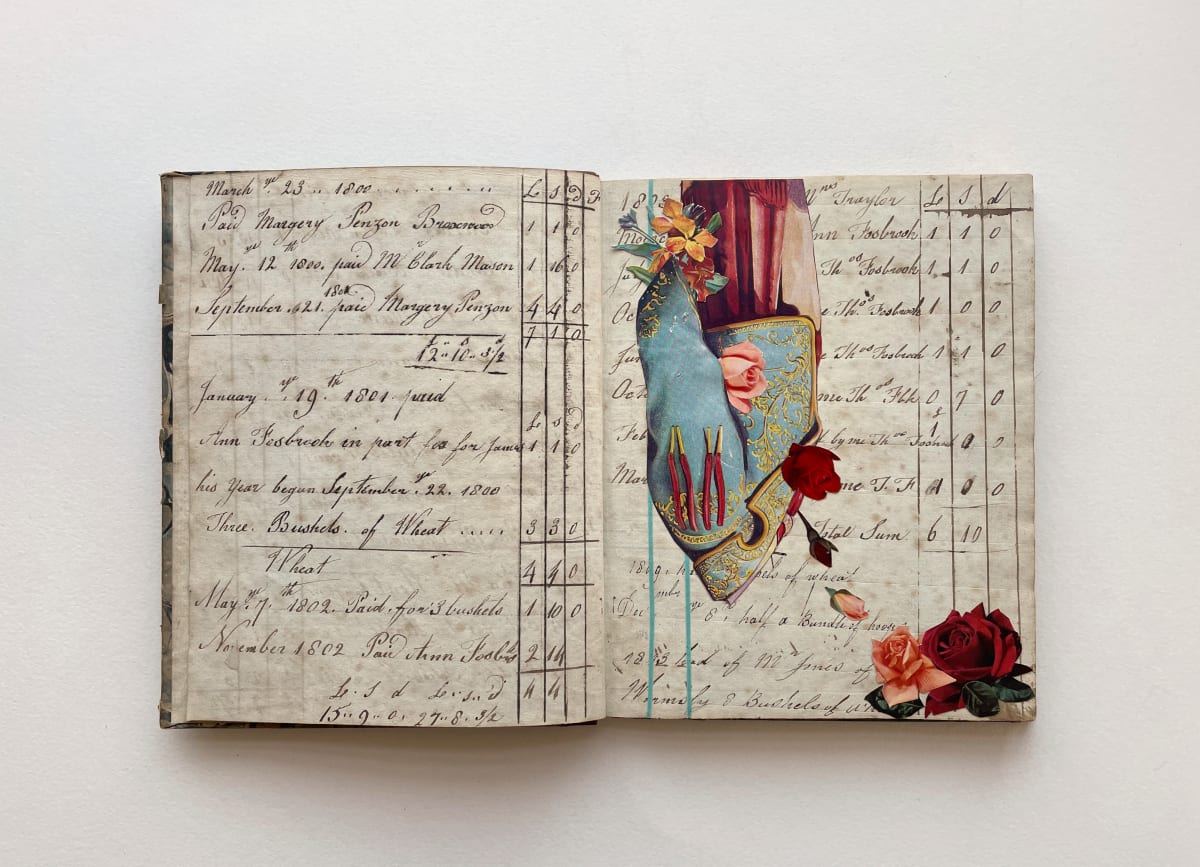 March ye 23 .. 1800 . . . . . . . £ S D F
Paid Margery Penzon 1 1 0
May ye 12th 1800. paid Mr Clark Mason 1 16 0
September 21 1800 paid Margery Penzon 4 4 0
7 1 0
£ " s " d
12 " 10 " 3/2
January ye 19th 1801 paid
£ s d
Ann Fosbrook in part for James 1 1 0
his Year began September ye 22. 1800
Three Bushels of Wheat ..... 3 3 0
Wheat 4 4 0
May ye 7th 1802. Paid for 3 bushels 1 10 0
November 1802 Paid Ann 2 14
£ . s d £ .. s .. d 4 4
15 .. 9 .. 0. 27 .. 8. 3/2
Traylor £ S d
Ann Fosbrook 1 1 0
Thos Fosbrook 1 1 0
Oc e Thos. Fosbrook 1 0 0
e Thos Fosbrook 1 1 0
Octo me Thos Fbk 0 7 0
Feb by me Thos 0 0
Mar me T. F 1 0 0
Total Sum 6 10
of wheat
Dec ye 8, half a
lead of Mr Jones of
8 Bushels of